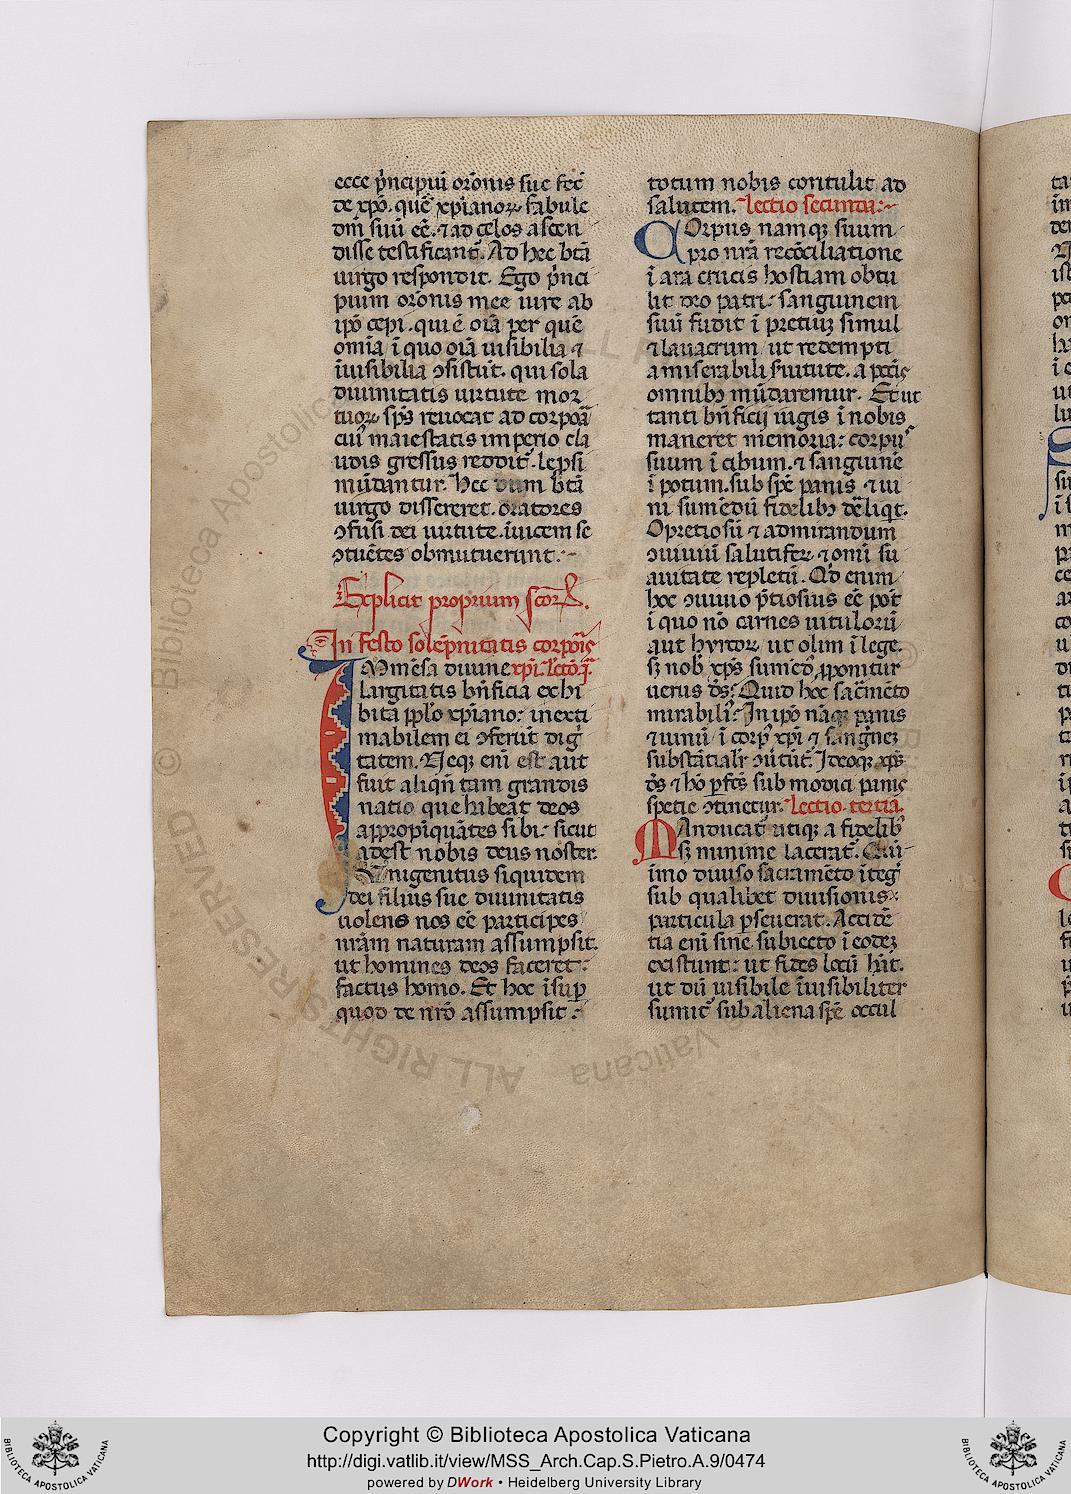 ecce p̄ncipiū or̄onis sue fec̄
de xp̄o. quē xp̄ianoꝝ fabule
dm̄ suū eē. ⁊ ad celos ascen
disse testificant᷑. Ad hec bt̄a
uirgo respondit. Ego p̄nci
pium or̄onis mee iure ab
ip̄o cepi. qui ē oīa per quē
omīa ī quo oīa uisibilia ⁊
īuisibilia ꝯsistūt. qui sola
diuinitatis uirtute mor
tuoꝝ sp̄s reuocat ad corpoꝛa
cui᷒ maiestatis imperio cla
udis gressus reddit᷑. lep̄si
mūdantur. Hec dum bt̄a
uirgo dissereret. oratores
ꝯfusi dei uirtute. īuicem se
ꝯtuētes obmutuerunt.
Explicit proprium sc̄oꝝ.
In festo solēpnitatis corpoīs
INmēsa diuine xp̄i. lectō. p̄ᵃ.
largitatis bn̄ficia exhi
bita pp̄lo xp̄iano: inexti
mabilem ei ꝯferūt dig̅
tatem. Neqꝫ enī est aut
fuit aliqn̄ tam grandis
natio que habeat deos
appropīquātes sibi: sicut
adest nobis deus noster.
Unigenitus siquidem
dei filius sue diuinitatis
uolens nos eē participes
nr̄am naturam assumpsit.
ut homines deos faceret:
factus homo. Et hoc īsup̱
quod de nr̄o assumpsit:
totum nobis contulit ad
salutem. Lectio secunda:
COrpus namqꝫ suum
pro nr̄a recōciliatione
ī ara crucis hostiam obtu
lit deo patri: sanguinem
suū fudit ī pretiuꝫ simul
⁊ lauacrum ut redempti
a miserabili ſuitute. a pctīs
omnibꝫ mūdaremur. Et ut
tanti bn̄ficij iugis ī nobis
maneret memoria: corpus
suum ī cibum. ⁊ sanguinē
ī potum. sub spē panis ⁊ ui
ni sumēdū fidelibꝫ dēliqͥt.
O pretiosū ⁊ admirandum
ꝯuiuiū salutiferꝝ ⁊ omī su
auitate repletū. Qͥd enim
hoc ꝯuiuio p̄tiosius eē pōt
ī quo nō carnes uituloꝝ
aut hyrcoꝝ ut olim ī lege.
sꝫ nob̄ xp̄s sumēd᷒ p̱ponitur
uerus dꝰ? Quid hoc sac̄mēto
mirabili᷒? In ip̄o nāqꝫ panis
⁊ uinū ī corp᷒ xp̄i ⁊ sang̅neꝫ
substātialit᷑ ꝯūtūt᷑. Ideoqꝫ xp̄s
dꝰ ⁊ hō p̱fc̄s sub modici panis
spetie ꝯtinetur. Lectio tertia.
MAnducat᷑ utiqꝫ a fidelibꝫ
sꝫ minime lacerat᷑. Qui
imo diuiso sacramēto īteg᷑
sub qualibet diuisionis
particula p̱seuerat. Accidē
tia enī sine subiecto ī eodeꝫ
existunt: ut fides locū hāt.
ut dū uisibile īuisibiliter
sumit᷑ sub aliena spē occul
© Biblioteca Apostolica Vaticana
ALL RIGHTS RESERVED
Copyright © Biblioteca Apostolica Vaticana
http://digi.vatlib.it/view/MSS_Arch.Cap.S.Pietro.A.9/0474
powered by DWork • Heidelberg University Library
BIBLIOTECA APOSTOLICA VATICANA
BIBLIOTECA APOSTOLICA VATICANA